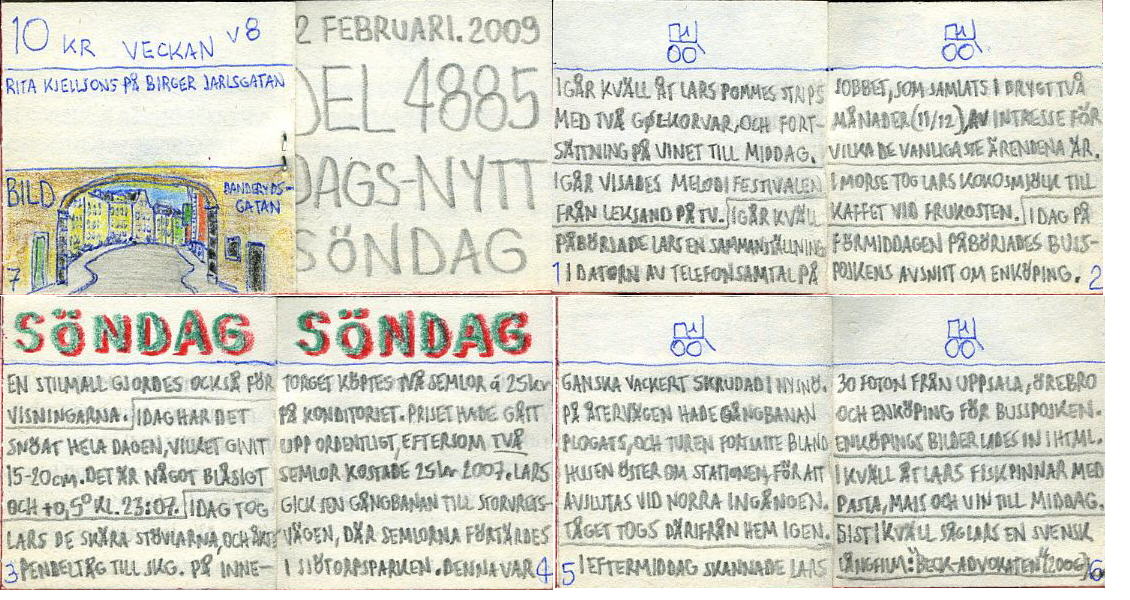 10 KR VECKAN V8
RITA KJELLSONS PÅ BIRGER JARLSGATAN
BILD
DANDERYDS-
GATAN
7
2 FEBRUARI. 2009
DEL 4885
DAGS-NYTT
SÖNDAG
IGÅR KVÄLL ÅT LARS POMMES STRIPS
MED TVÅ GRILLKORVAR, OCH FORT-
SÄTTNING PÅ VINET TILL MIDDAG.
IGÅR VISADES MELODIFESTIVALEN
FRÅN LEKSAND PÅ TV. IGÅR KVÄLL
PÅBÖRJADE LARS EN SAMMANSTÄLLNING
1 I DATORN AV TELEFONSAMTAL PÅ
JOBBET, SOM SAMLATS I DRYGT TVÅ
MÅNADER (11/12), AV INTRESSE FÖR
VILKA DE VANLIGASTE ÄRENDENA ÄR.
I MORSE TOG LARS KOKOSMJÖLK TILL
KAFFET VID FRUKOSTEN. IDAG PÅ
FÖRMIDDAGEN PÅBÖRJADES BUSS-
POJKENS AVSNITT OM ENKÖPING. 2
SÖNDAG
EN STILMALL GJORDES OCKSÅ FÖR
VISNINGARNA. IDAG HAR DET
SNÖAT HELA DAGEN, VILKET GIVIT
15-20cm. DET ÄR NÅGOT BLÅSIGT
OCH +0,5° KL. 23:07. IDAG TOG
LARS DE SKÄRA STÖVLARNA, OCH ÅKTE
3 PENDELTÅG TILL SKG. PÅ INNE-
SÖNDAG
TORGET KÖPTES TVÅ SEMLOR á 25kr
PÅ KONDITORIET. PRISET HADE GÅTT
UPP ORDENTLIGT, EFTERSOM TVÅ
SEMLOR KOSTADE 25kr 2007. LARS
GICK SEN GÅNGBANAN TILL STORVRETS-
VÄGEN, DÄR SEMLORNA FÖRTÄRDES
I SJÖTORPSPARKEN. DENNA VAR 4
GANSKA VACKERT SKRUDAD I NYSNÖ.
PÅ ÅTERVÄGEN HADE GÅNGBANAN
PLOGATS, OCH TUREN FORTSATTE BLAND
HUSEN ÖSTER OM STATIONEN, FÖR ATT
AVSLUTAS VID NORRA INGÅNGEN.
TÅGET TOGS DÄRIFRÅN HEM IGEN.
5 I EFTERMIDDAG SKANNADE LARS
30 FOTON FRÅN UPPSALA, ÖREBRO
OCH ENKÖPING FÖR BUSSPOJKEN.
ENKÖPINGS BILDER LADES IN I HTML.
IKVÄLL ÅT LARS FISKPINNAR MED
PASTA, MAJS OCH VIN TILL MIDDAG.
SIST IKVÄLL SÅG LARS EN SVENSK
LÅNGFILM: "BECK-ADVOKATEN" (2006). 6